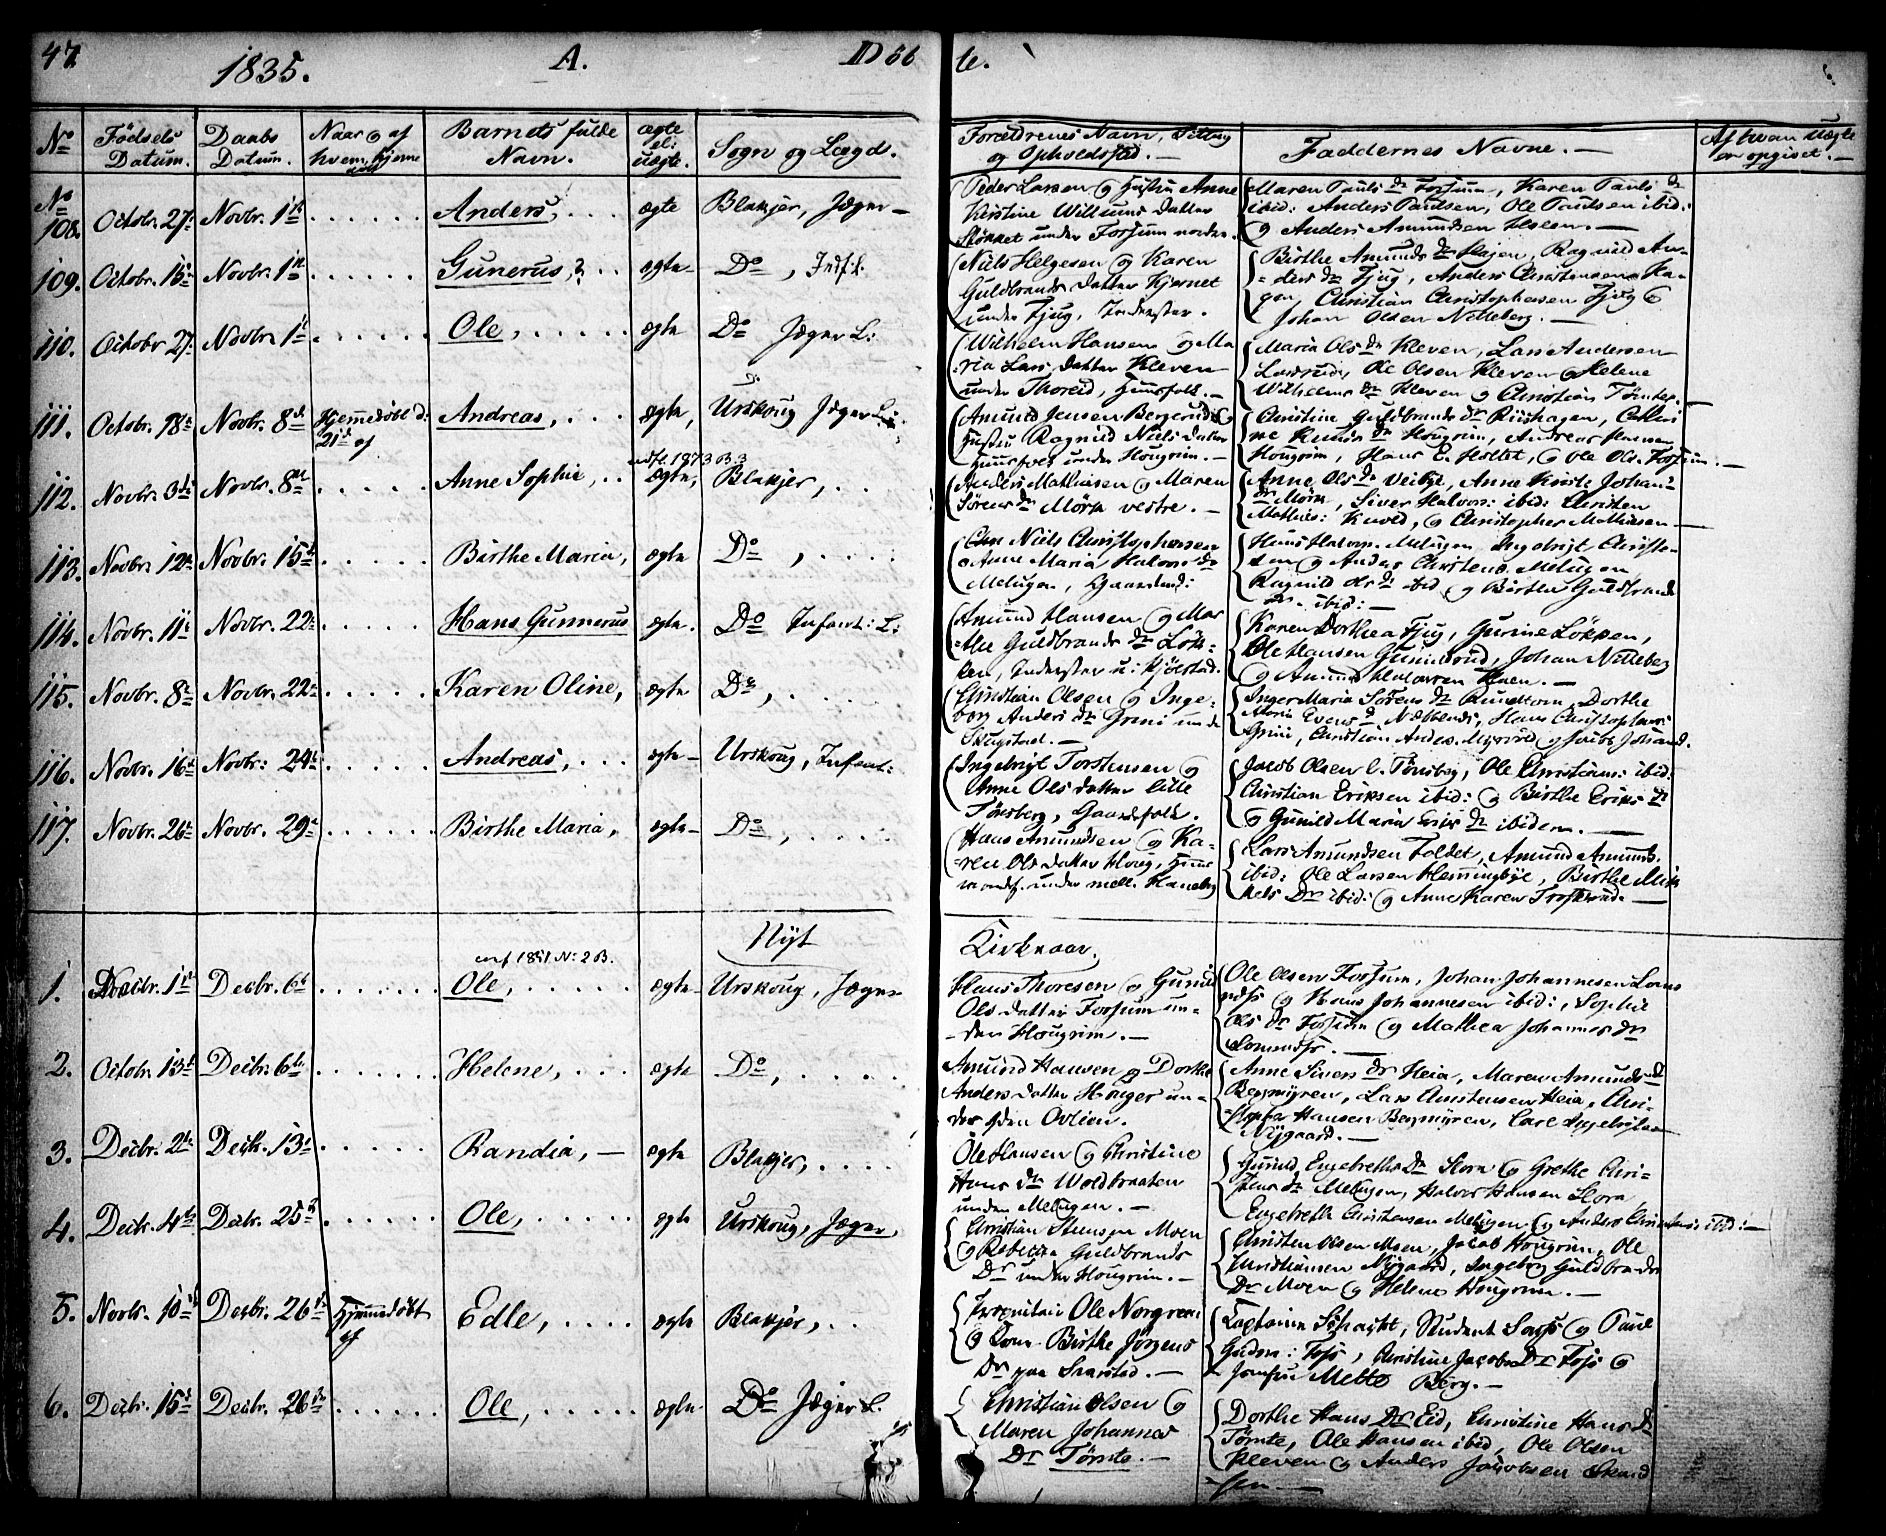 47
1835.
A.
Døbte.
No
Fødsels Datum.
Daabs Datum.
Naar og af hvem hjemme døbt
Barnets fulde Navn.
ægte el: uægte.
Sogn og Lægd.
Forældrenes Navn, Stilling og Opholdssted. —
Faddernes Navne. —
Af hvem Uægte er opgivet. —
No 108. Octobr. 27 Novbr. 1 Anders, ægte Blakjer, Jæger —
Peder Larsen og Hustru Anne
Kirstine Willums Datter
Stökket under Forsum nordre.
Maren Pauls Dr Forsum, Karen Pauls Dr
ibid: Anders Paulsen, Ole Paulsen ibid:
og Anders Amundsen
109. Octobr. 15 Novbr. 1 Gunerus, ægte Do, Inf. L.
Niels Helgesen og Karen
Guldbrands Datter Kjernet
under Fjug, Inderster.
Birthe Amunds Dr Hagen, Ragnild An-
-ders Dr Fjug, Anders Christensen Ha-
gen, Christian Christophersen Fjug og
Johan Olsen Nitteberg. —
110. Octobr 27 Novbr 1 Ole, ægte Do Jæger L:
Wilhelm Hansen og Ma
ria Lars Datter Kleven
under Thoreid, Huusfolk. —
Maria Ols Dr Kleven, Lars Andersen
Ole Olsen Kleven og Helene
Wilhelms Dr Kleven og Christian Tömte. —
111. Octobr. 18 Novbr. 8 Hjemmedöbt d: 21 af Andreas, ægte, Urskoug Jæger L:
Amund Jensen Bergerud og
Hustru Ragnild Niels Datter
Huusfolk under Hougrim. —
Christine Guldbrands Dr Riishagen,
Hougrim, Andreas
Hougrim, Hans E. Holtet, og Ole Ols. Forsum. —
112. Novbr. 3 Novbr. 8 Anne Sophie, ægte, Blakjer,
1873 B. 3
Anders Mathisen og Maren
Sörens Dr Mörk vestre. —
Anne Ols Dr Veibye, Anne Kirste Johans
Dr Mörk, Siver Halvors: ibid: Christen
Mathis: Kuved, og Christopher Mathisen —
113. Novbr. 12 Novbr. 15 Birthe Maria, ægte Do,
Niels Christophersen
og Anne Maria Halvors Dr
Melugen, Gaardmd:
Hans Halvors. Melugen Ingebrigt Christo-
sen og Anders Christens. Melugen
Ragnild Ols Dr ibid og Birthe Guldbrands
Dr. ibid: —
114. Novbr. 11 Novbr. 22 Hans Gunnerus ægte. Do Infant: L:
Amund Hansen og Mar
the Guldbrands Dr Lök-
ken, Inderster u: Kjölstad.
Karen Dorthea Fjug, Gurine Lökken,
Ole Hansen Gunnerud, Johan Nitteberg
og Amund Halvorsen —
115. Novbr. 8 Novbr. 22 Karen Oline, ægte Do,
Christian Olsen og Inge-
borg Anders Dr Grini unde
Skugstad. —
Inger Maria Sörens Dr Rundtom, Dorthe
Maria Evens Dr Næbbends, Hans Christophers:
Grini, Christian Anders. og Jacob Johand.
116. Novbr. 16 Novbr: 24 Andreas, ægte — Urskoug, Infant:
Ingebrigt Torstensen og
Anne Ols Datter lille
Tönsberg, Gaardfolk.
Jacob Olsen l. Tönsberg, Ole Christians: ibid:
Christian Eriksen ibid: og Birthe Eriks Dr
og Gunild Maria Eriks Dr ibidem. —
117. Novbr. 26 Novbr. 29 Birthe Maria, ægte — Do,
Hans Amundsen og Ka-
-ren Ols Datter Houg, Huus
mandsf. under mell. Haneborg
Lars Amundsen Toldet, Amund Amunds.
ibid: Ole Larsen Hemmingbye, Birthe Mik
kels Dr ibid: og Anne Karen Troskerud. —
Nyt Kirkeaar.
1. Decbr. 1 Decbr. 6 Ole, ægte Urskoug, Jæger
1851 No: 2 B.
Hans Thoresen og Gunild
Ols Datter Forsum un-
-der Hougrim. —
Ole Olsen Forsum, Johan Johannesen Loms
og Hans Johannesen ibid:, Sophie
Ols Dr Forsum og Mathea Johannes Dr
Lomsnæss. —
2. Octobr. 13 Decbr. 6 Helene, ægte Do,
Amund Hansen og Dorthe
Anders Datter Houger un-
-der Ovlien.
Anne Sivers Dr Heia, Maren Amunds Dr
Bergmyren, Lars Christensen Heia, Chri-
-stopher Hansen Bergmyren, Carl Ingebrigtsen
Nygaard. —
3. Decbr. 2 Decbr. 13 Randia, — ægte Blakjer,
Ole Hansen og Christine
Hans Dr Woldbraaten
under Melugen. —
Gunild Engebreths Dr Slora og Grethe Chri-
stens Dr Melugen, Halvor Hansen Slora
Engebreth Christensen Melugen og Anders Christens: ibid: —
4. Decbr. 4 Decbr. 25 Ole, ægte Urskoug, Jæger
Christian Moen
og Rebecka Guldbrands
Dr under Hougrim. —
Christen Olsen Moen, Jacob Hougrim, Ole
Christiansen Nygaard, Ingeborg Guldbrands
Dr Moen og Helene Hougrim. —
5. Novbr. 10 Decbr. 26 Hjemmedöbt af Edle, ægte Blakjer,
Ole Norgreen
og Kone Birthe Jörgens
Dr paa Snarstad. —
Captaine Schacht, Student Sass og Paul
Gudm: Foss, Christine Jacobs Dr Foss og
Jomfru Mette Berg. —
6. Decbr. 15 Decbr. 26 Ole, ægte Do Jæger L.
Christian Olsen og
Maren Johannes
Dr Tömte. —
Dorthe Hans Dr Eid, Christine Hans Dr
Tömte, Ole Hansen ibid, Ole Olsen
Kleven og Anders Jacobsen Skand
-sen —